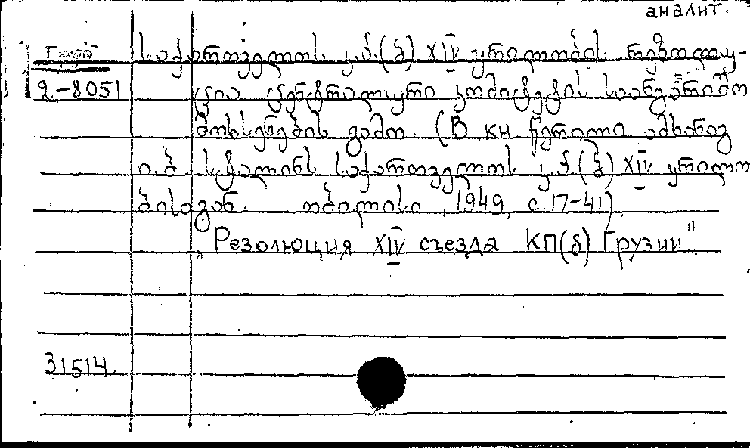 аналит.
Груз საქართველოს კ.პ.(ბ) XIV ყრილობის რეზოლუ-
2-8051 ცია ცენტრალური კომიტეტის საანგარიშო
მოხსენების გამო. (В кн. წერილი ამხანაგ
ი.ბ. სტალინს საქართველოს კ.პ.(ბ) XIV ყრილო
ბისაგან. თბილისი, 1949, с. 17-41)
„Резолюция XIV съезда КП(б) Грузии"
31514.